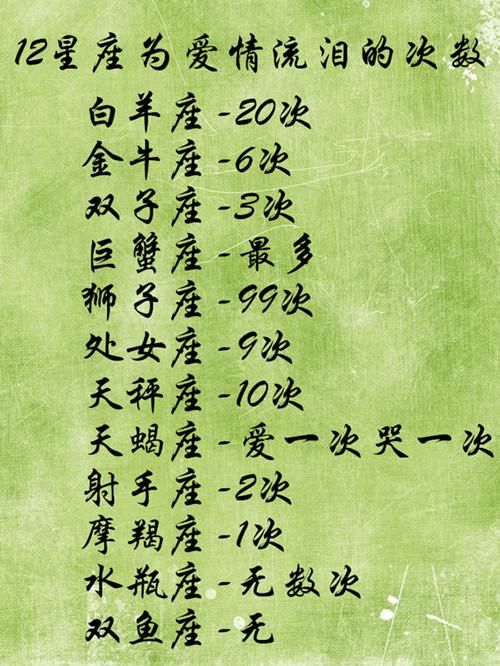 12星座为爱情流泪的次数
白羊座-20次
金牛座-6次
双子座-3次
巨蟹座-最多
狮子座-99次
处女座-9次
天秤座-10次
天蝎座-爱一次哭一次
射手座-2次
摩羯座-1次
水瓶座-无数次
双鱼座-无